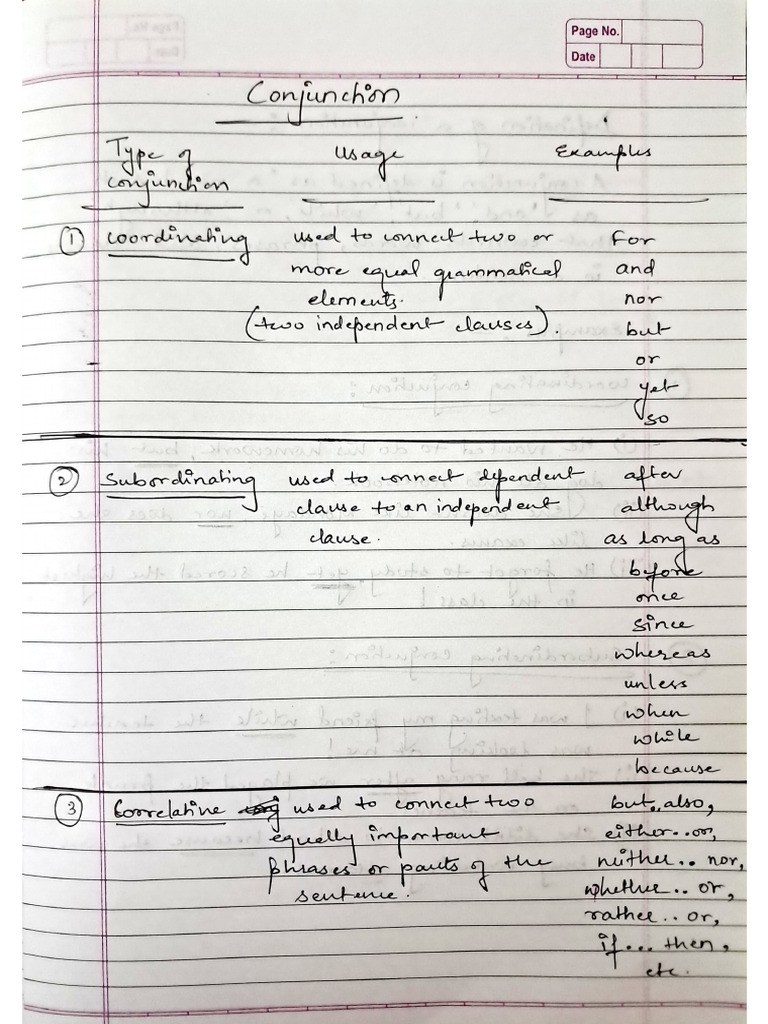 Page No.
Date
Conjunction
Type of conjunction Usage Examples
① Coordinating used to connect two or For
more equal grammatical and
elements. nor
(two independent clauses). but
or
yet
so
② Subordinating used to connect dependent after
clause to an independent although
clause. as long as
before
once
since
whereas
unless
when
while
because
③ Correlative used to connect two but..also,
equally important either..or,
phrases or parts of the neither.. nor,
sentence. whether.. or,
rather.. or,
if... then,
etc.